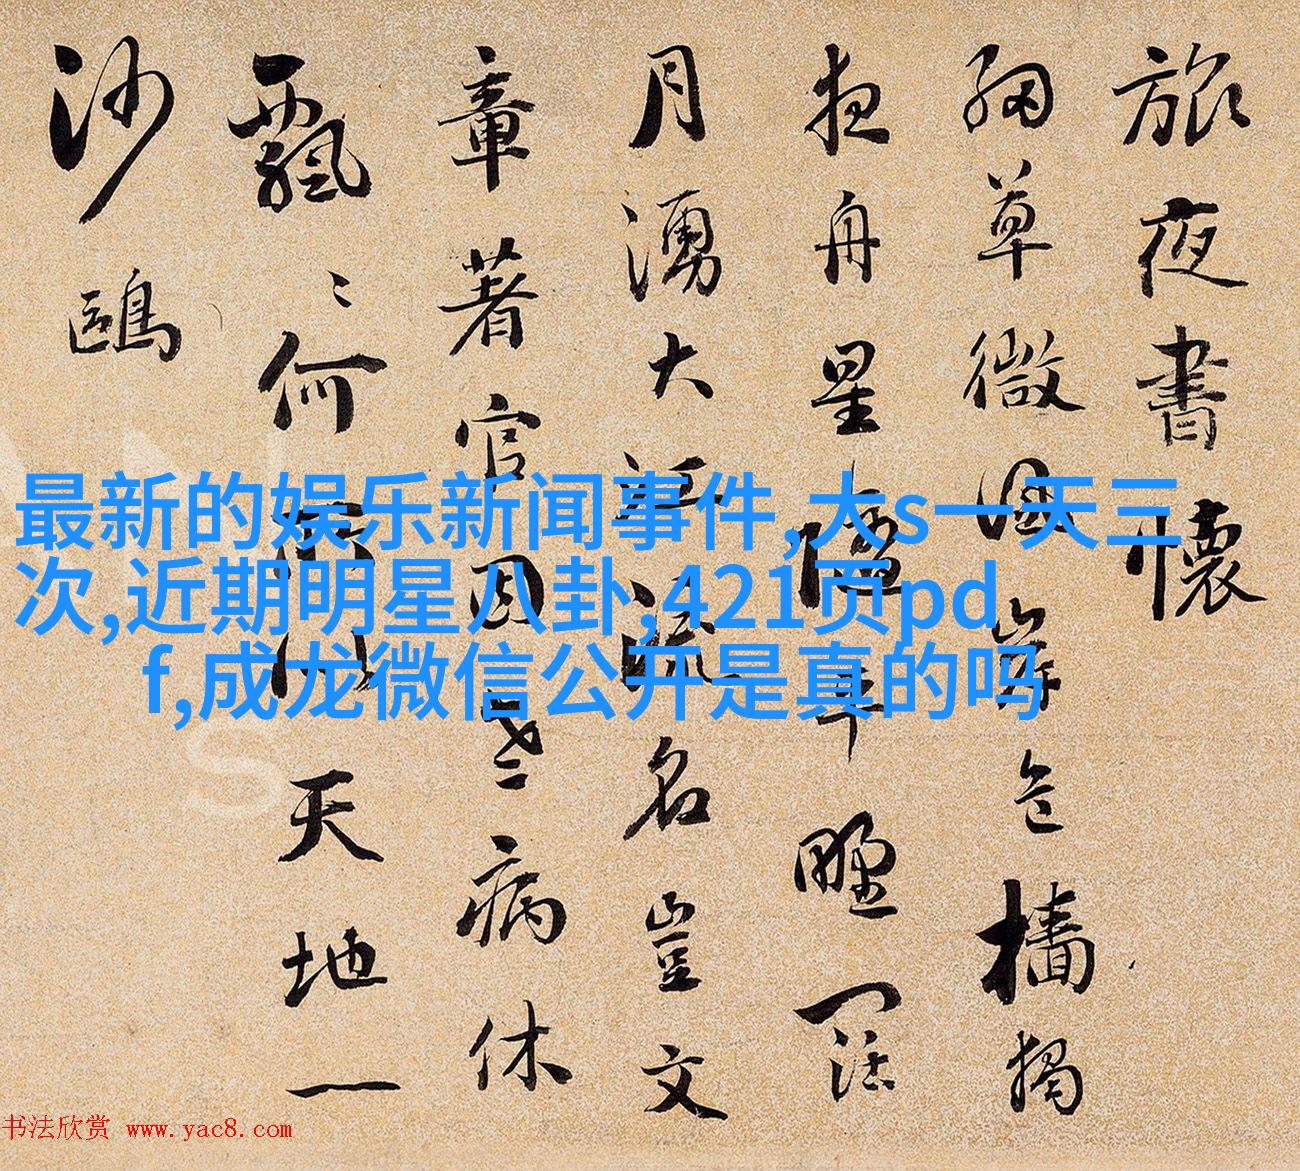 旅夜書懷
細草微風岸危檣獨
夜舟星隨平野闊
月湧大江流名豈文
章著官因老病休
飄〻何所似天地一
沙鷗
最新的娱乐新闻事件,大s一天三
次,近期明星八卦,421页pd
f,成龙微信公开是真的吗
书法欣赏 www.yac8.com